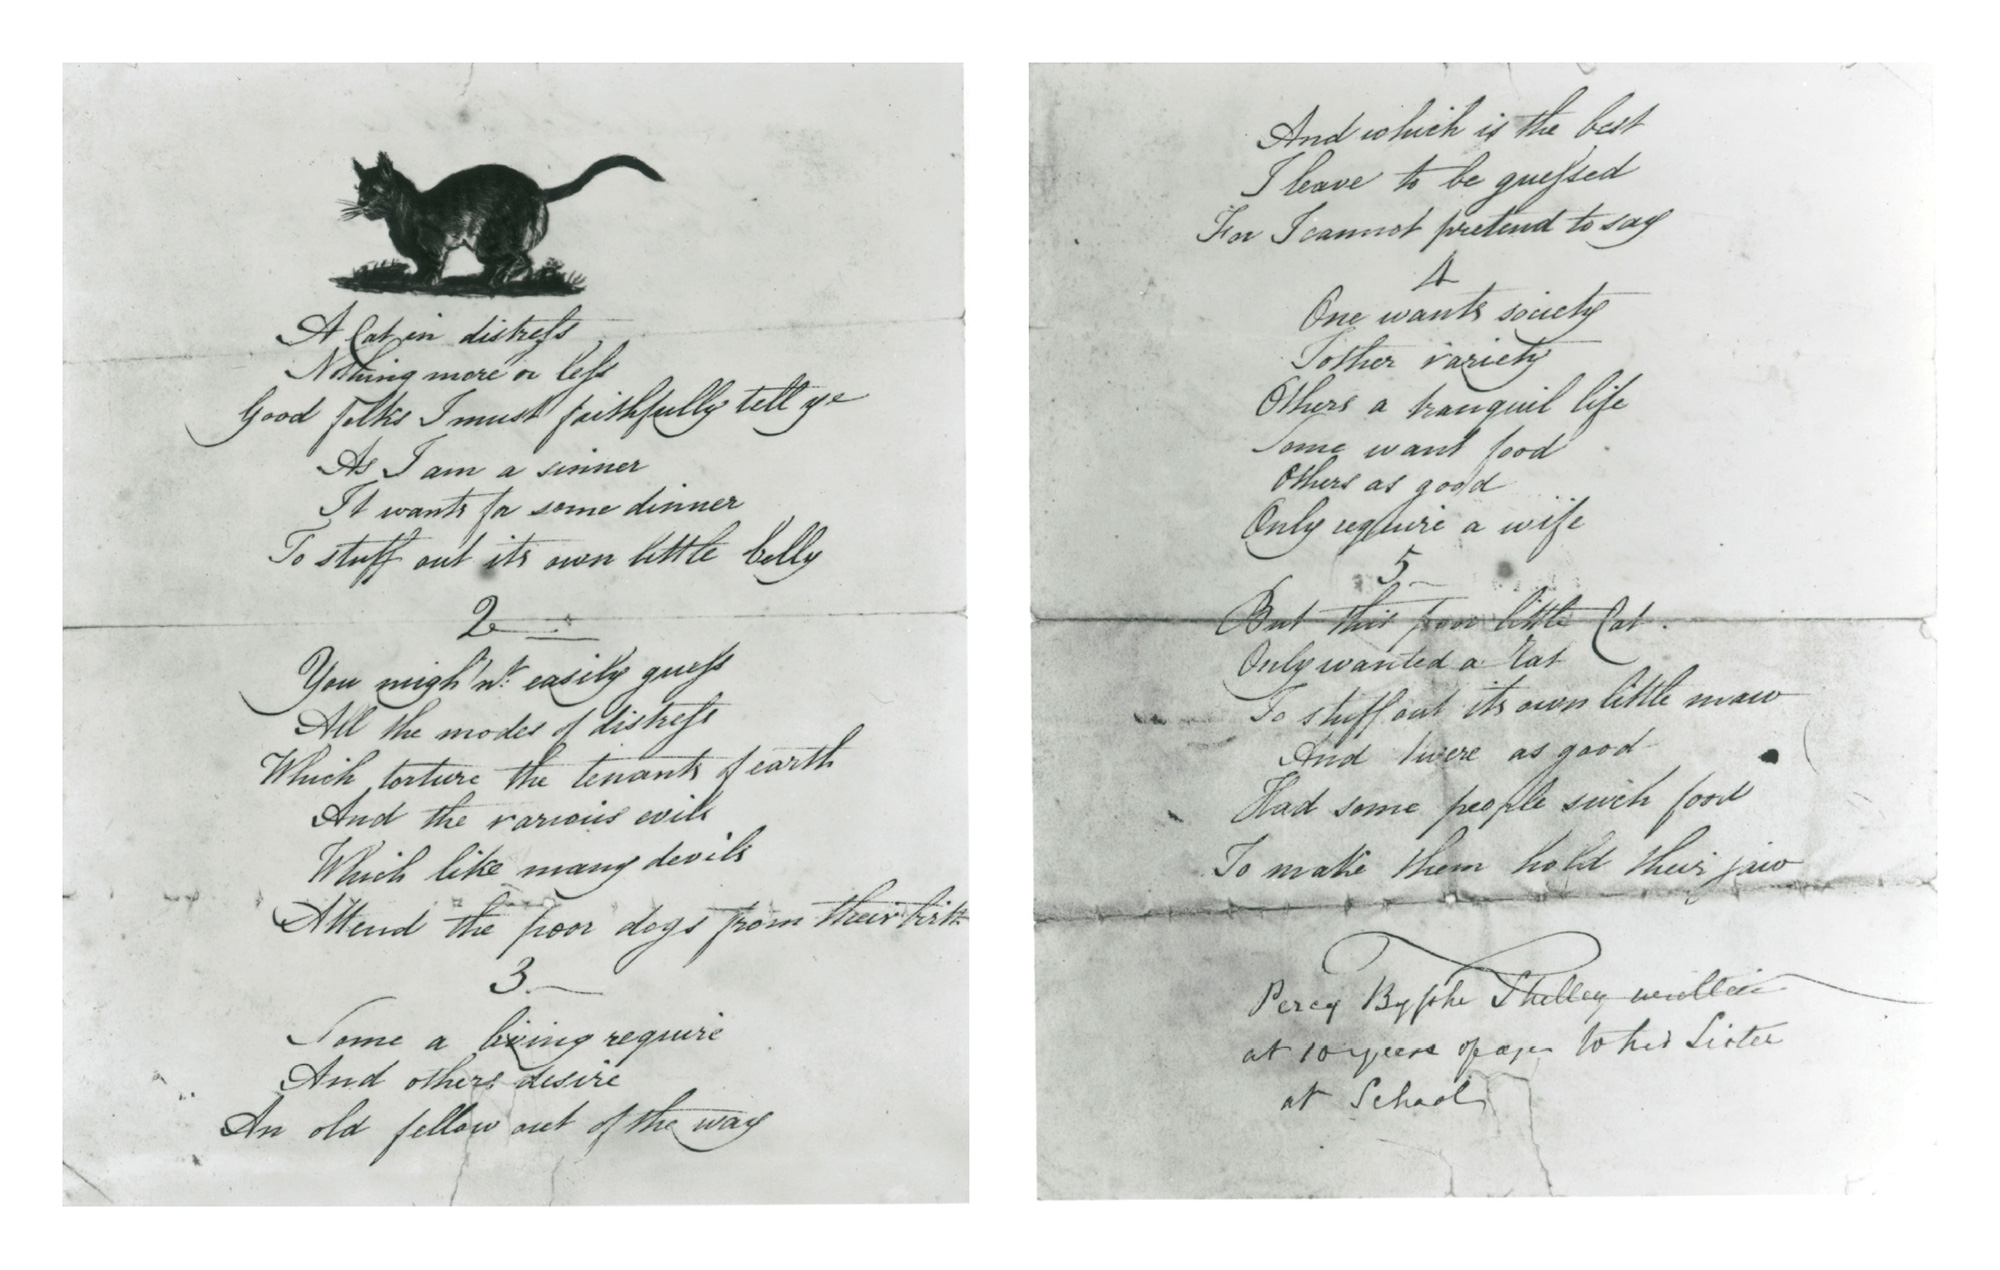 A Cat in distreſs
Nothing more or leſs
Good folks I must faithfully tell ye
As I am a sinner
It wants for some dinner
To stuff out its own little belly
2
You migh'nt easily gueſs
All the modes of distreſs
Which torture the tenants of earth
And the various evils
Which like many devils
Attend the poor dogs from their birth
3.
Some a living require
And others desire
An old fellow out of the way
And which is the best
I leave to be gueſsed
For I cannot pretend to say
4
One wants society
T'other variety
Others a tranquil life
Some want food
Others as good
Only require a wife
5
But this poor little Cat
Only wanted a rat
To stuff out its own little maw
And 'twere as good
Had some people such food
To make them hold their jaw
Percy Byſshe Shelley written
at 10 years of age to his Sister
at School